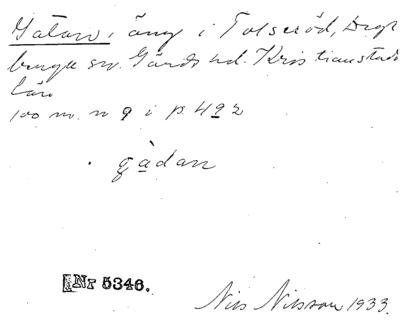 Gatan, äng i Tolseröd, Degeberga sn. Gärds hd. Kristianstads
län
100 m. n 9 i p. 492
gàdan
Nr 5346.
Nils Nilsson 1933.